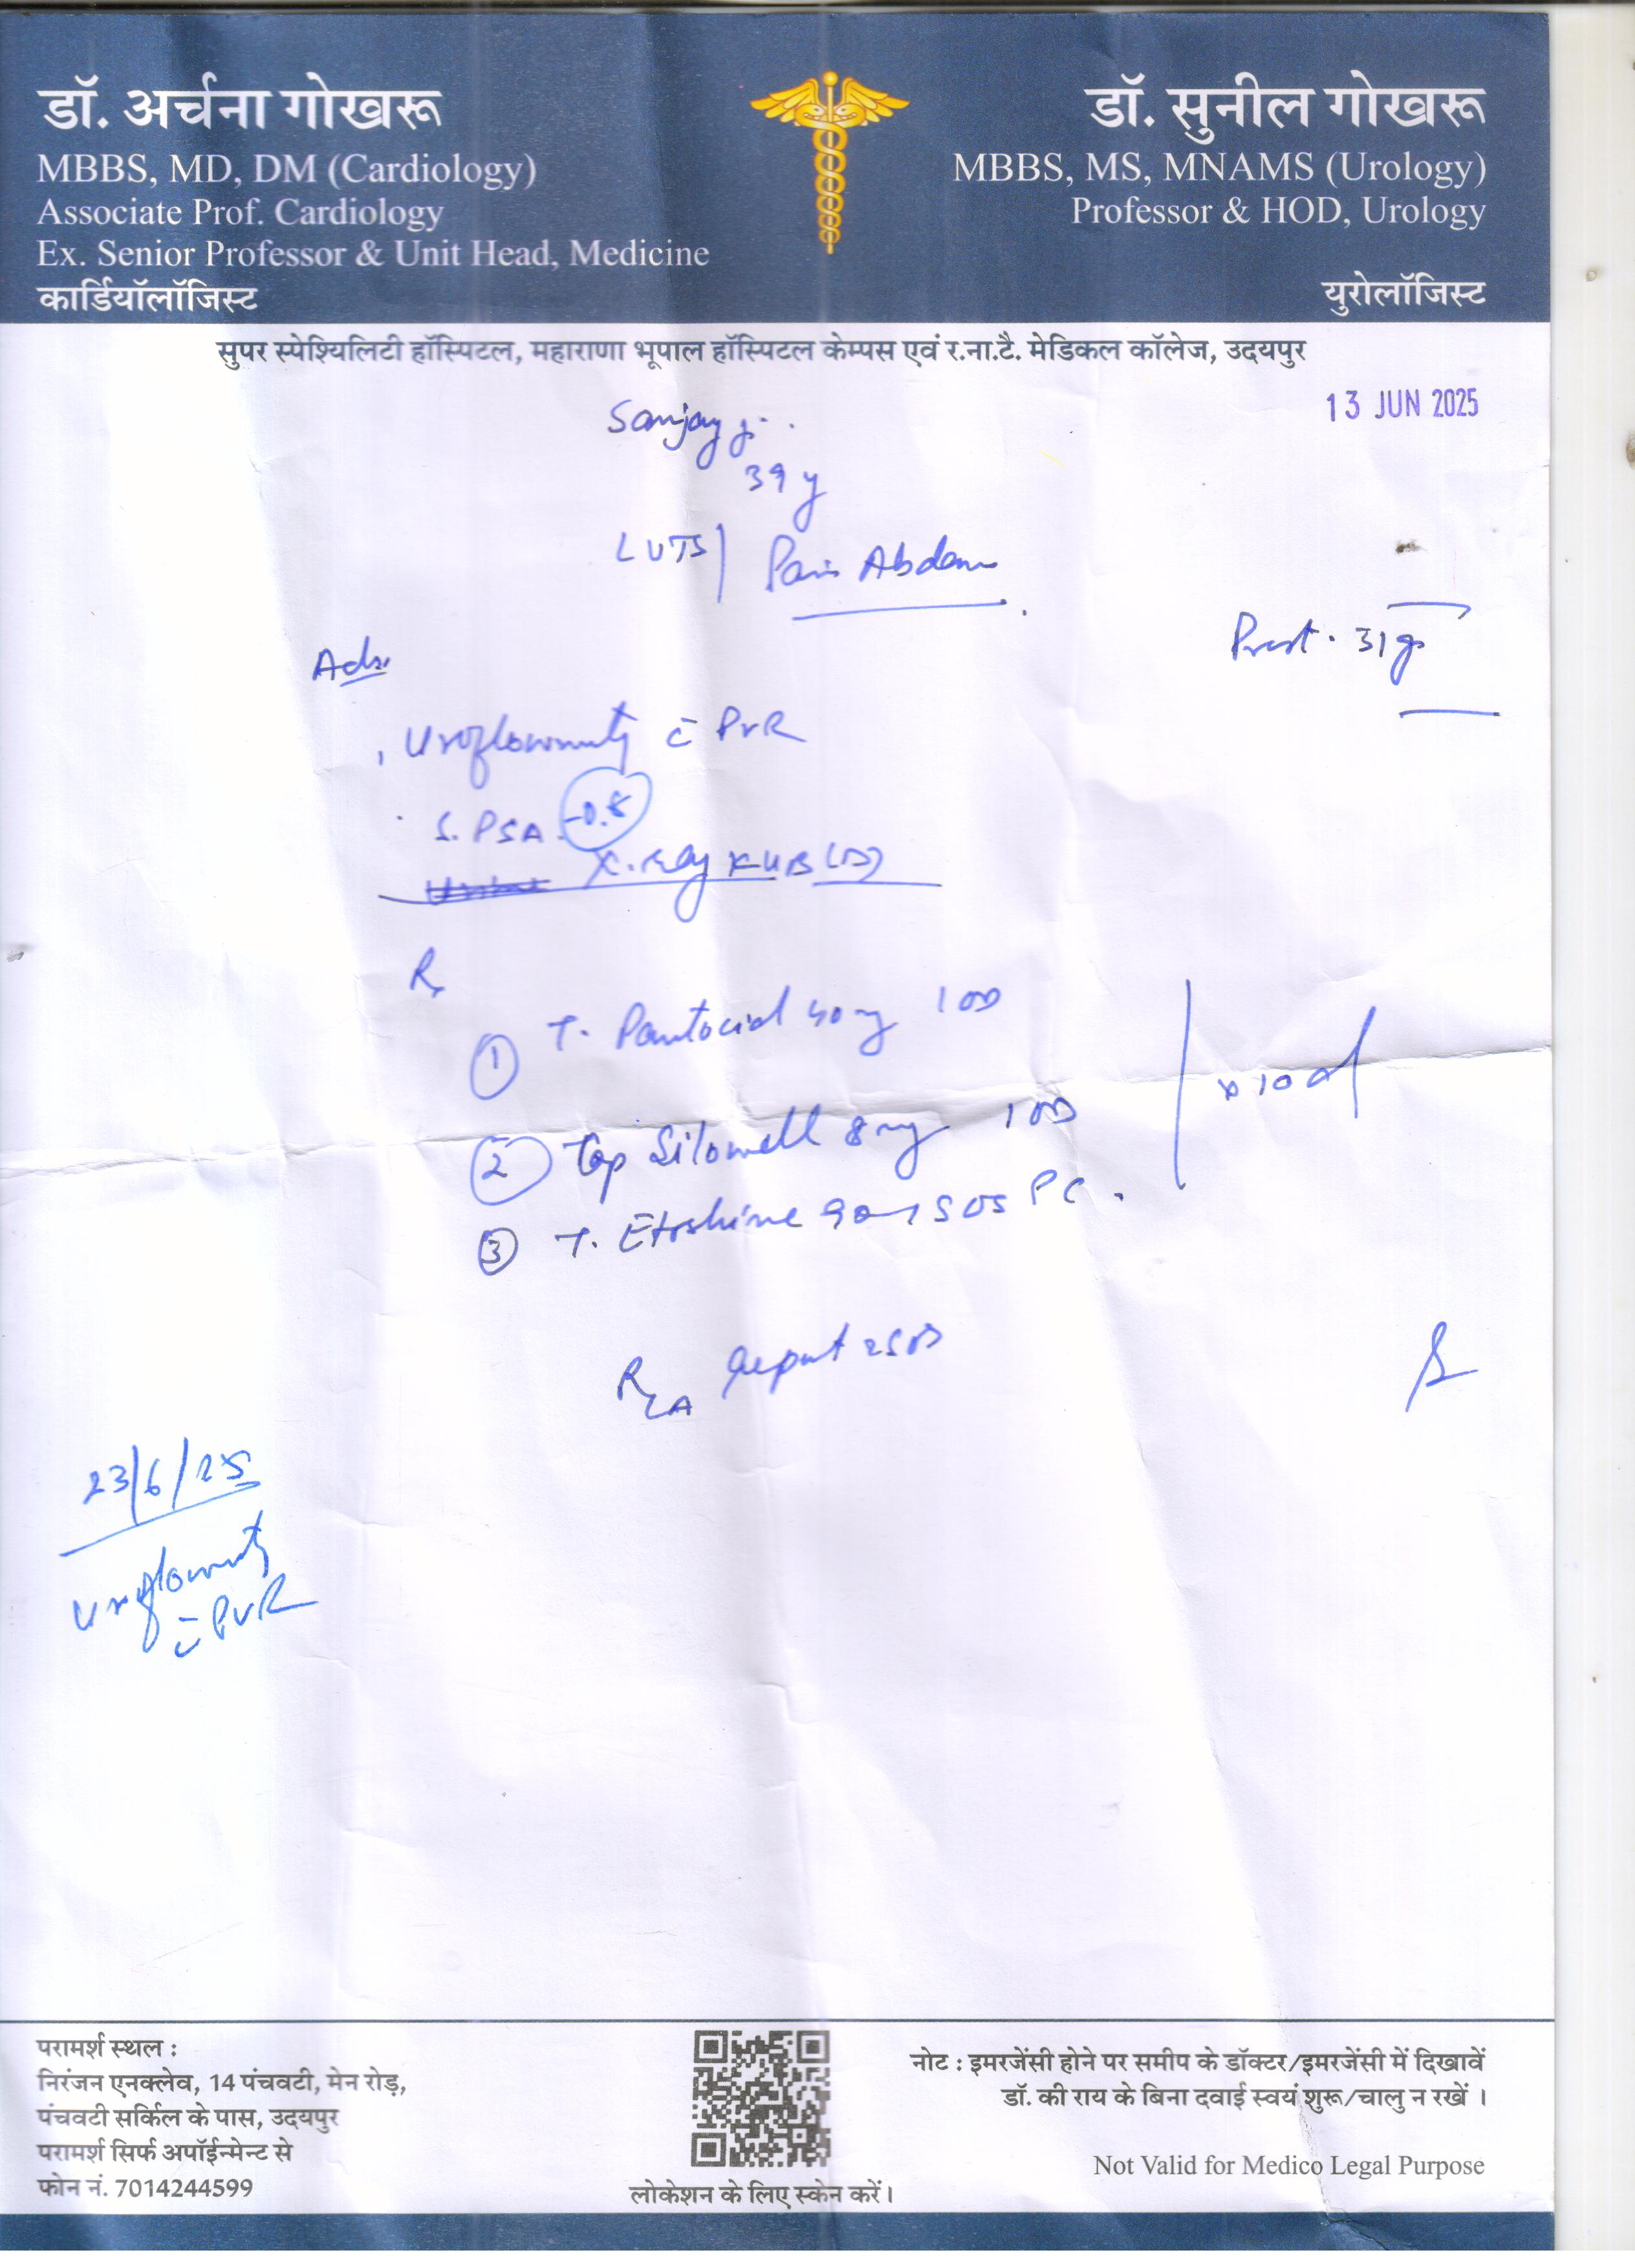 डॉ. अर्चना गोखरू
MBBS, MD, DM (Cardiology)
Associate Prof. Cardiology
Ex. Senior Professor & Unit Head, Medicine
कार्डियॉलॉजिस्ट
डॉ. सुनील गोखरू
MBBS, MS, MNAMS (Urology)
Professor & HOD, Urology
युरोलॉजिस्ट
सुपर स्पेश्यिलिटी हॉस्पिटल, महाराणा भूपाल हॉस्पिटल केम्पस एवं र.ना.टै. मेडिकल कॉलेज, उदयपुर
13 JUN 2025
Sanjay ji
39 y
LUTS | Pain Abdom
Prost. 31 g
Adv.
Uroflowmetry c̄ PVR
S. PSA -0.8
X. ray KUB (D)
Rx
① T. Pantocid 40 mg 1 OD
② Cap Silowell 8 mg 1 OD
x 10 d
③ T. Etoshine 90 SOS PC.
23/6/25
Uroflowmetry
c̄ PVR
परामर्श स्थल :
निरंजन एनक्लेव, 14 पंचवटी, मेन रोड़,
पंचवटी सर्किल के पास, उदयपुर
परामर्श सिर्फ अपॉईन्मेन्ट से
फोन नं. 7014244599
लोकेशन के लिए स्केन करें।
नोट : इमरजेंसी होने पर समीप के डॉक्टर/इमरजेंसी में दिखावें
डॉ. की राय के बिना दवाई स्वयं शुरू/चालु न रखें ।
Not Valid for Medico Legal Purpose